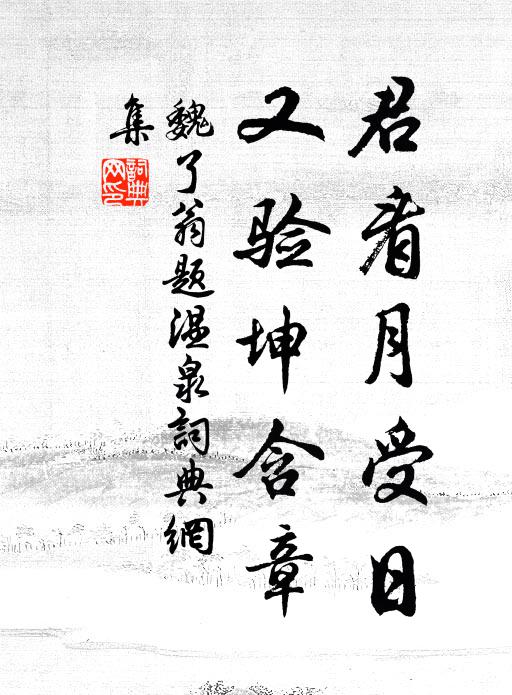 君看月受日
又验坤含章
魏了翁题温泉詞典網
集
詞典
网印